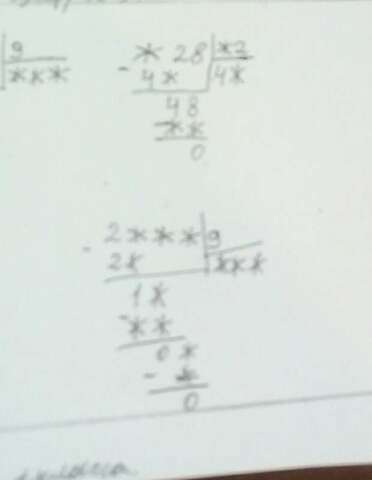 9
***
*28 *2
- 4* 4*
48
- **
0
- 2*** 9
2* ***
1*
- **
0*
- *
0